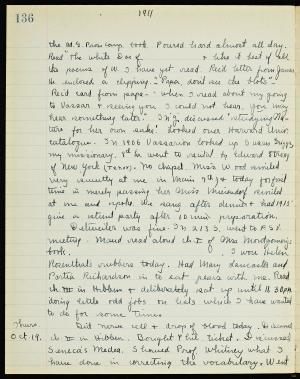 136
1911
the M.E. Pron Camp. book. Poured hard almost all day.
Read "The white Doe of & like it best of all
the poems of W. I have yet read. Rec'd letter from James
He enclosed a clipping - "Papa, don't see the blots" -
Rec'd card from papa - "when I read about my going
to Vassar & seeing you I could not hear. You may
hear something later."
for her own sake." Looked over Harvard Univ.
catalogue. In 1906 Vassarion looked up Susan
my missionary.
of New York In chapel Miss Wood smiled
very sweetly at me in Main & today
time in merely passing her Miss smiled
at me and spoke. She sang after dinner & had 1915
give a stunt party after 10 min. preparation.
Debmuler was fine. In 213 S. went to
meeting. Maud read aloud ch I of Mrs. Montgomery's
book. I wore Helen
Rosenthal's rubbers today. Had Mary Lancaster and
Portia Richardson in to eat pears with me. Read
ch III in Hibben & deliberately sat up until 11.30 P.M.
doing little odd jobs on lists which I have wanted
to do for some time.
Thurs.
Oct. 19.
Did nerve cell & drop of blood today. Discussed
ch II in Hibben. Bought & bill ticket. Discussed
Seneca's Medea. Showed Prof. Whitney what I
have done in correcting the vocabulary. Went